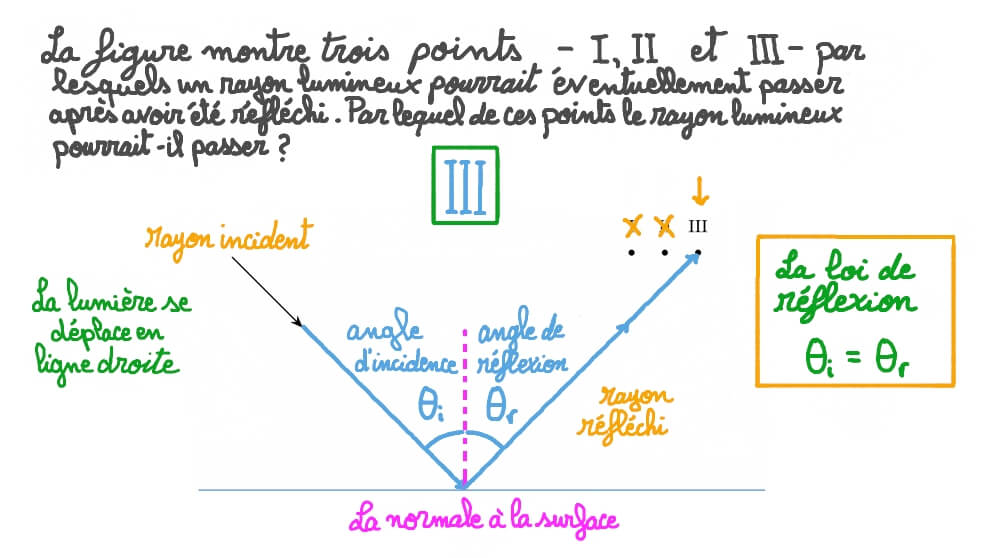 La figure montre trois points - I, II et III - par
lesquels un rayon lumineux pourrait éventuellement passer
après avoir été réfléchi. Par lequel de ces points le rayon lumineux
pourrait-il passer ?
III
rayon incident
III
La lumière se
déplace en
ligne droite
angle
d'incidence
θi
angle de
réflexion
θr
rayon
réfléchi
La loi de
réflexion
θi = θr
La normale à la surface